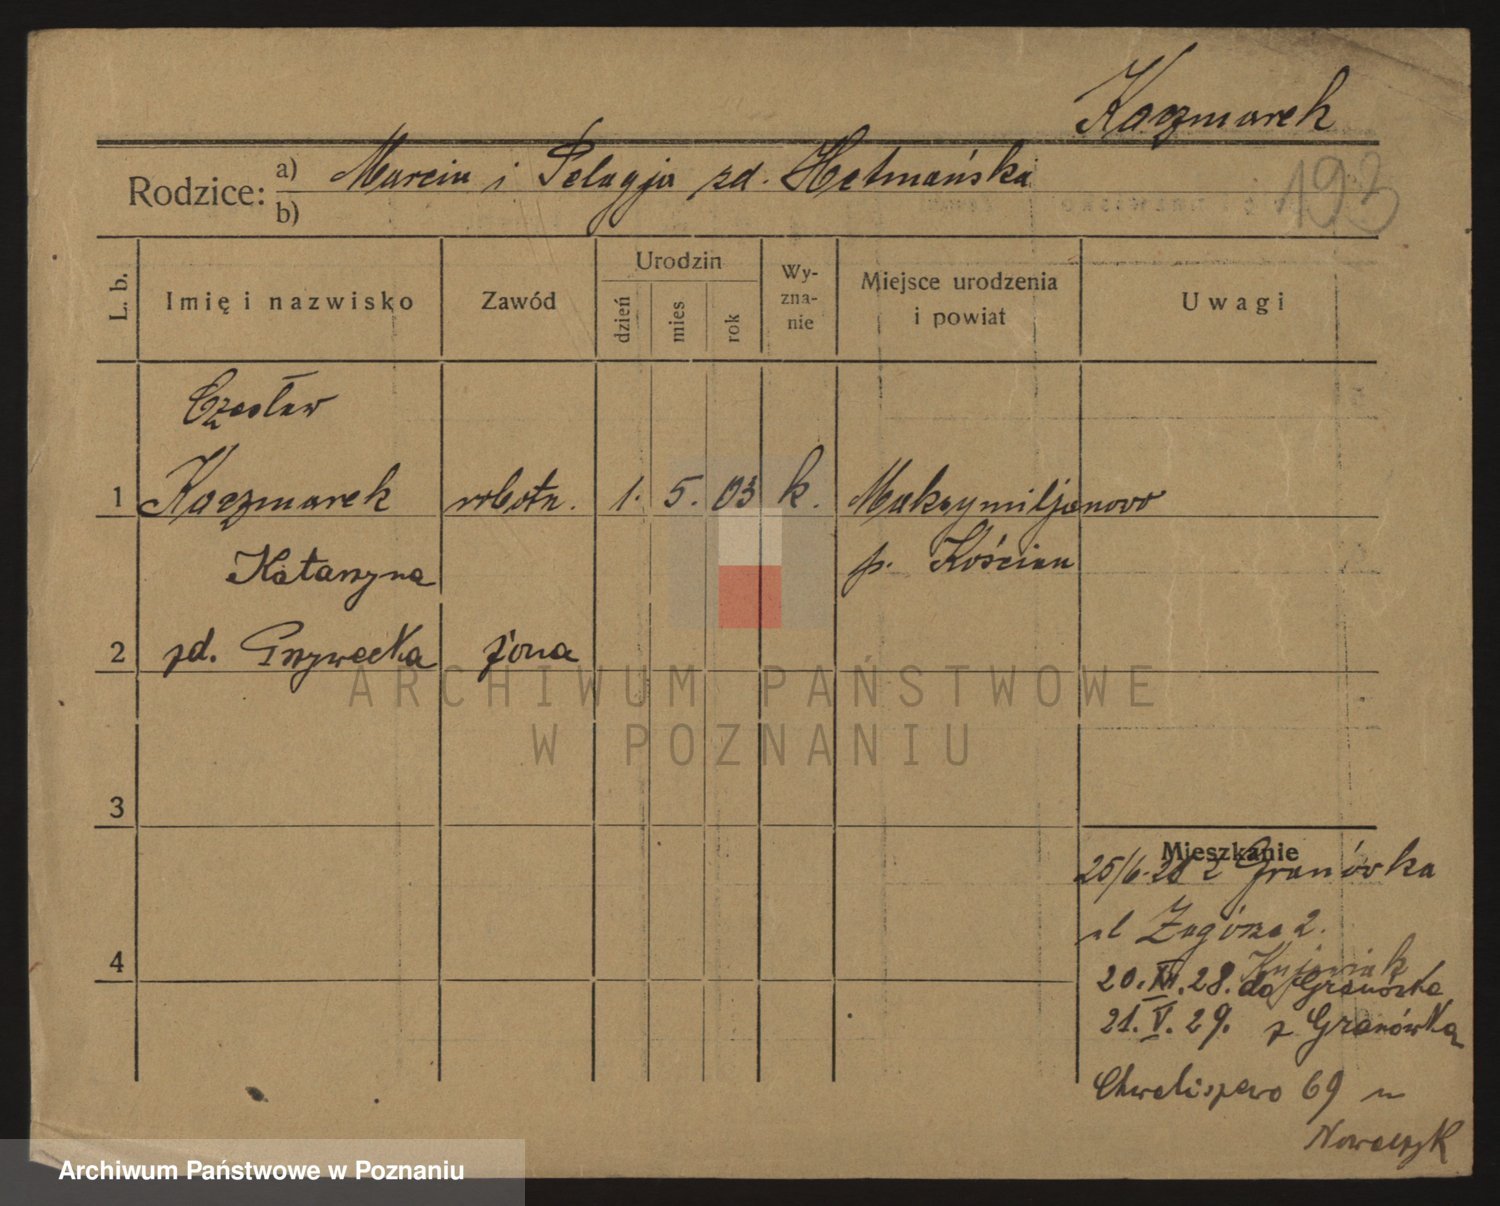 Kaczmarek
192
Rodzice: a) Marcin i Pelagja zd. Hetmańska
b)
L. b. Imię i nazwisko Zawód Urodzin dzień mies rok Wy-zna-nie Miejsce urodzenia i powiat Uwagi
Czesław
1 Kaczmarek robotn. 1. 5. 03 k. Maksymiljanowo
p. Kościan
Katarzyna
2 zd. żona
3
Mieszkanie
25/6.28 z Granówka
ul Zagórze 2.
Kujawiak
4
20.XII.28. do Granówka
21.V.29. z Granówka
Chwaliszewo 69 u
Nowaczyk
ARCHIWUM PAŃSTWOWE
W POZNANIU
Archiwum Państwowe w Poznaniu